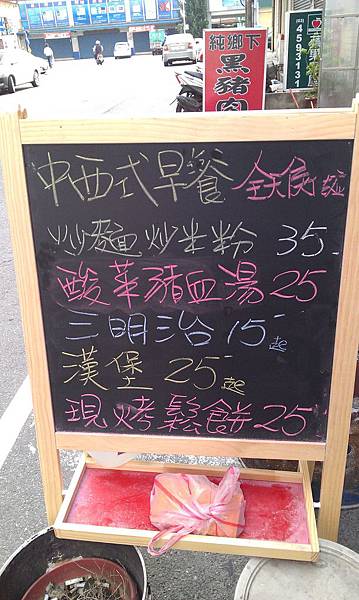 純鄉下
黑豬肉
(03)
4593131
中西式早餐 全天侯
炒麵炒米粉 35
酸菜豬血湯 25
三明治 15起
漢堡 25起
現烤鬆餅 25